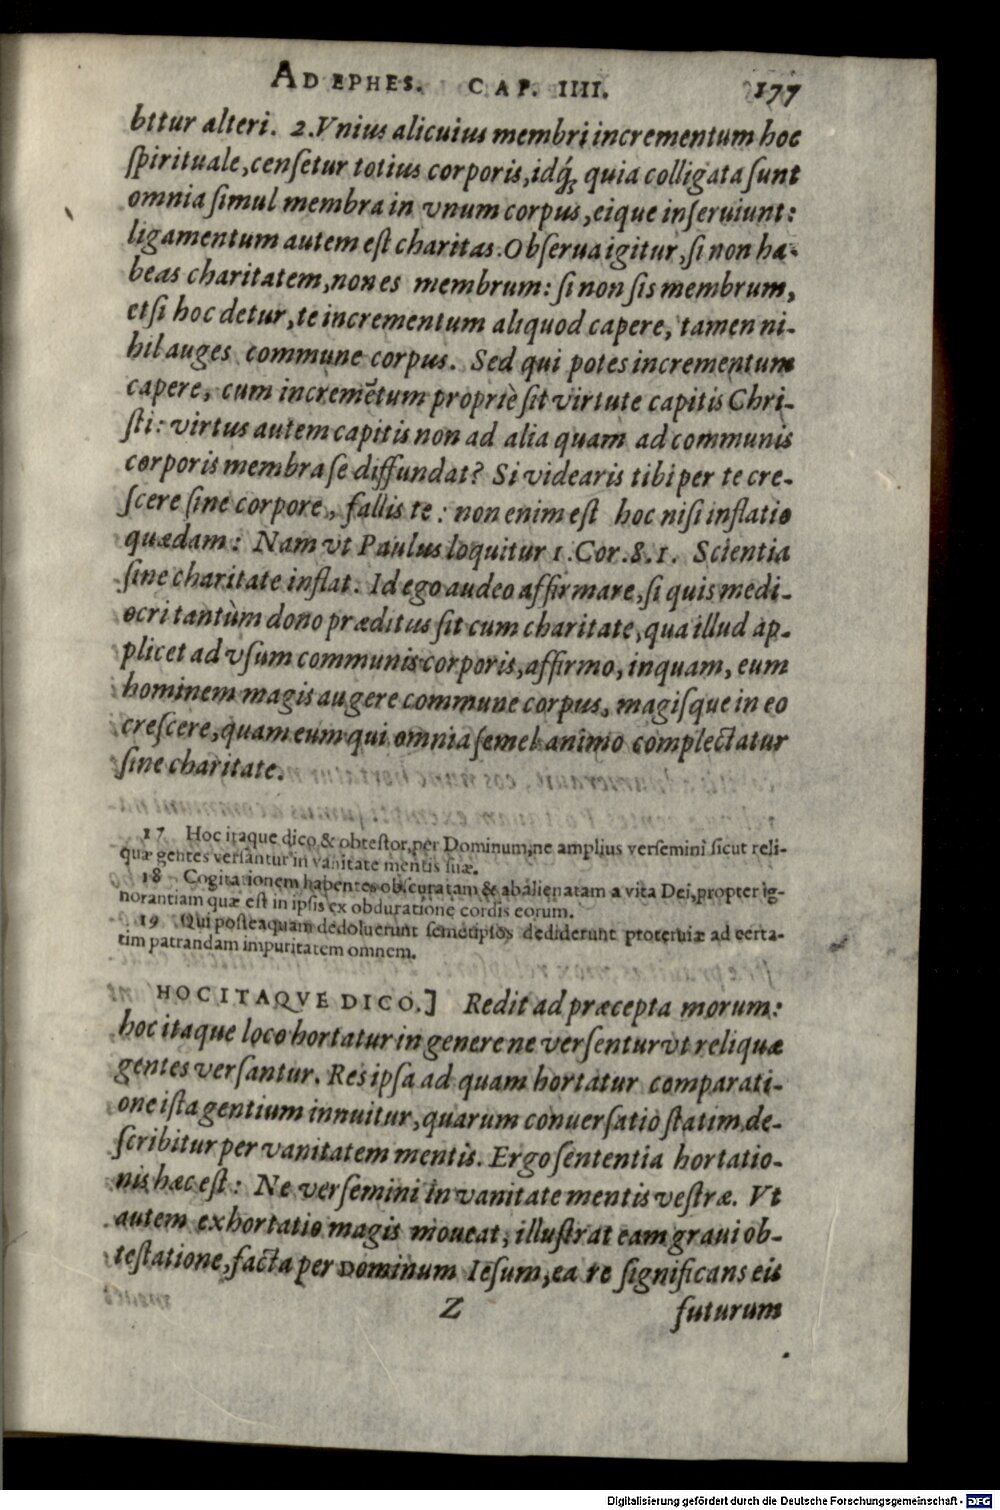 AD EPHES. CAP. IIII. 177
bitur alteri. 2. Vnius alicuius membri incrementum hoc
spirituale, censetur totius corporis, idq́; quia colligata sunt
omnia simul membra in vnum corpus, eique inseruiunt:
ligamentum autem est charitas. Obserua igitur, si non ha-
beas charitatem, non es membrum: si non sis membrum,
etsi hoc detur, te incrementum aliquod capere, tamen ni-
hil auges commune corpus. Sed qui potes incrementum
capere, cum incremētum propriè sit virtute capitis Chri-
sti: virtus autem capitis non ad alia quam ad communis
corporis membra se diffundat? Si videaris tibi per te cre-
scere sine corpore, fallis te: non enim est hoc nisi inflatio
quædam: Nam vt Paulus loquitur 1. Cor. 8. 1. Scientia
sine charitate inflat. Id ego audeo affirmare, si quis medi-
ocri tantùm dono præditus sit cum charitate, qua illud ap-
plicet ad vsum communis corporis, affirmo, inquam, eum
hominem magis augere commune corpus, magisque in eo
crescere, quam eum qui omnia semel animo complectatur
sine charitate.
17 Hoc itaque dico & obtestor, per Dominum, ne amplius versemini sicut reli-
quæ gentes versantur in vanitate mentis suæ.
18 Cogitationem habentes obscuratam & abalienatam a vita Dei, propter ig-
norantiam quæ est in ipsis ex obduratione cordis eorum.
19 Qui posteaquam dedoluerunt semetipsos dediderunt proteruiæ ad certa-
tim patrandam impuritatem omnem.
HOC ITAQVE DICO.] Redit ad præcepta morum:
hoc itaque loco hortatur in genere ne versentur vt reliquæ
gentes versantur. Res ipsa ad quam hortatur comparati-
one ista gentium innuitur, quarum conuersatio statim de-
scribitur per vanitatem mentis. Ergo sententia hortatio-
nis hæc est: Ne versemini in vanitate mentis vestræ. Vt
autem exhortatio magis moueat, illustrat eam graui ob-
testatione, facta per Dominum Iesum, ea re significans eis
Z futurum
Digitalisierung gefördert durch die Deutsche Forschungsgemeinschaft - DFG